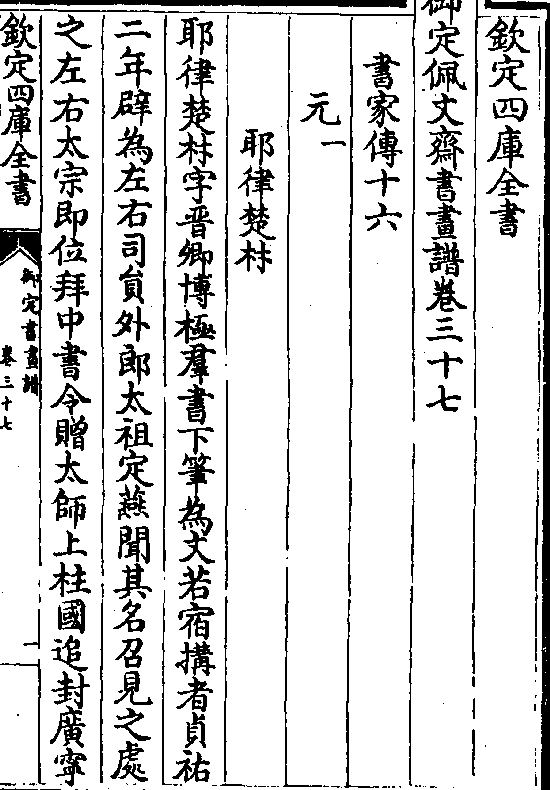 欽定四庫全書
御定佩文齋書畫譜卷三十七
書家傳十六
元一
耶律楚材
耶律楚材字晉卿博極羣書下筆為文若宿搆者貞祐
二年辟為左右司貟外郎太祖定燕聞其名召見之處
之左右太宗即位拜中書令贈太師上柱國追封廣寧
欽定四庫全書
御定書畫譜
卷三十七
一